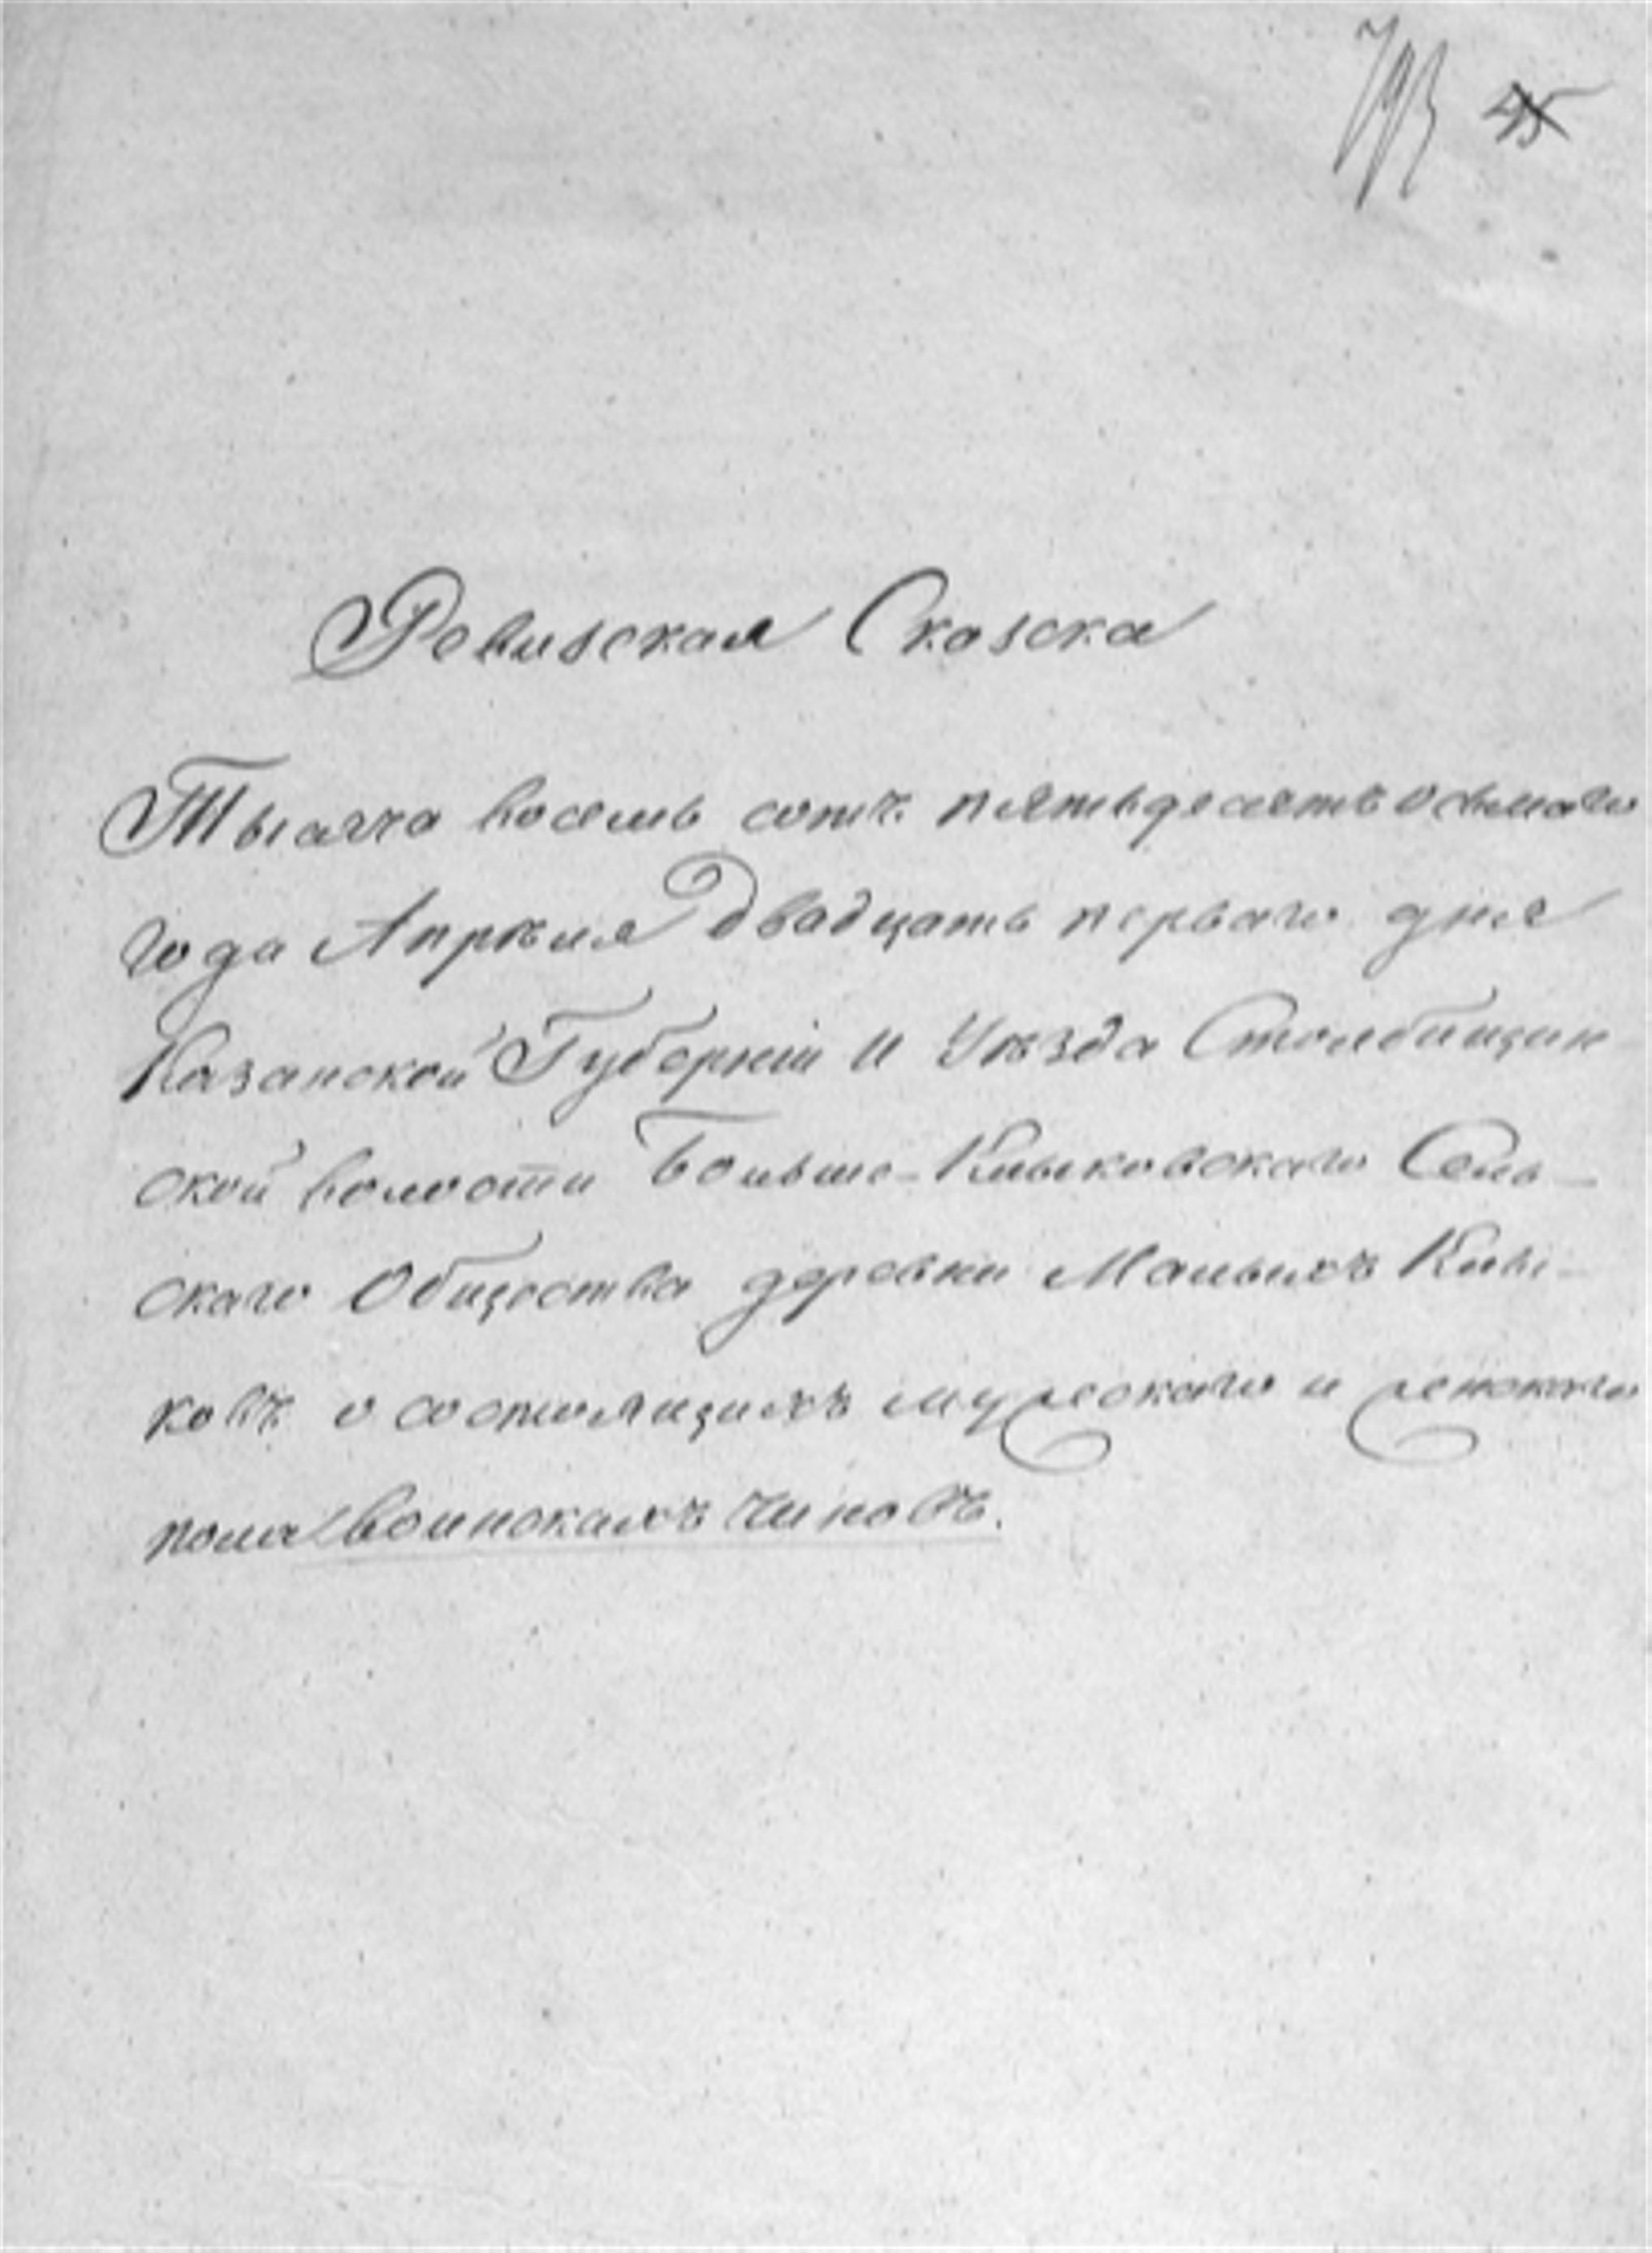 793 45
Ревизская Сказска
Тысяча восемь сотъ пятьдесятъ осьмаго
года Апрѣля двадцать перваго дня
Казанской Губерніи и Уѣзда Столбищин
ской волости Больше-Клыковскаго Сель-
скаго Общества деревни Малыхъ Клы-
ковъ о состоящихъ мужескаго и женскаго
пола воинскахъ чиновъ.